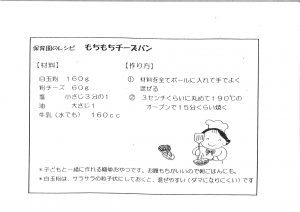 保育園のレシピ もちもちチーズパン
【材料】
白玉粉 160g
粉チーズ 60g
塩 小さじ3分の1
油 大さじ1
牛乳（水でも） 160cc
【作り方】
① 材料を全てボールに入れて手でよく
混ぜる
② 3センチくらいに丸めて190℃の
オーブンで15分くらい焼く
＊子どもと一緒に作れる簡単おやつです。お腹もちがいいので朝ごはんにも。
＊白玉粉は、サラサラの粒子状にしておくと、混ぜやすい（ダマになりにくい）です